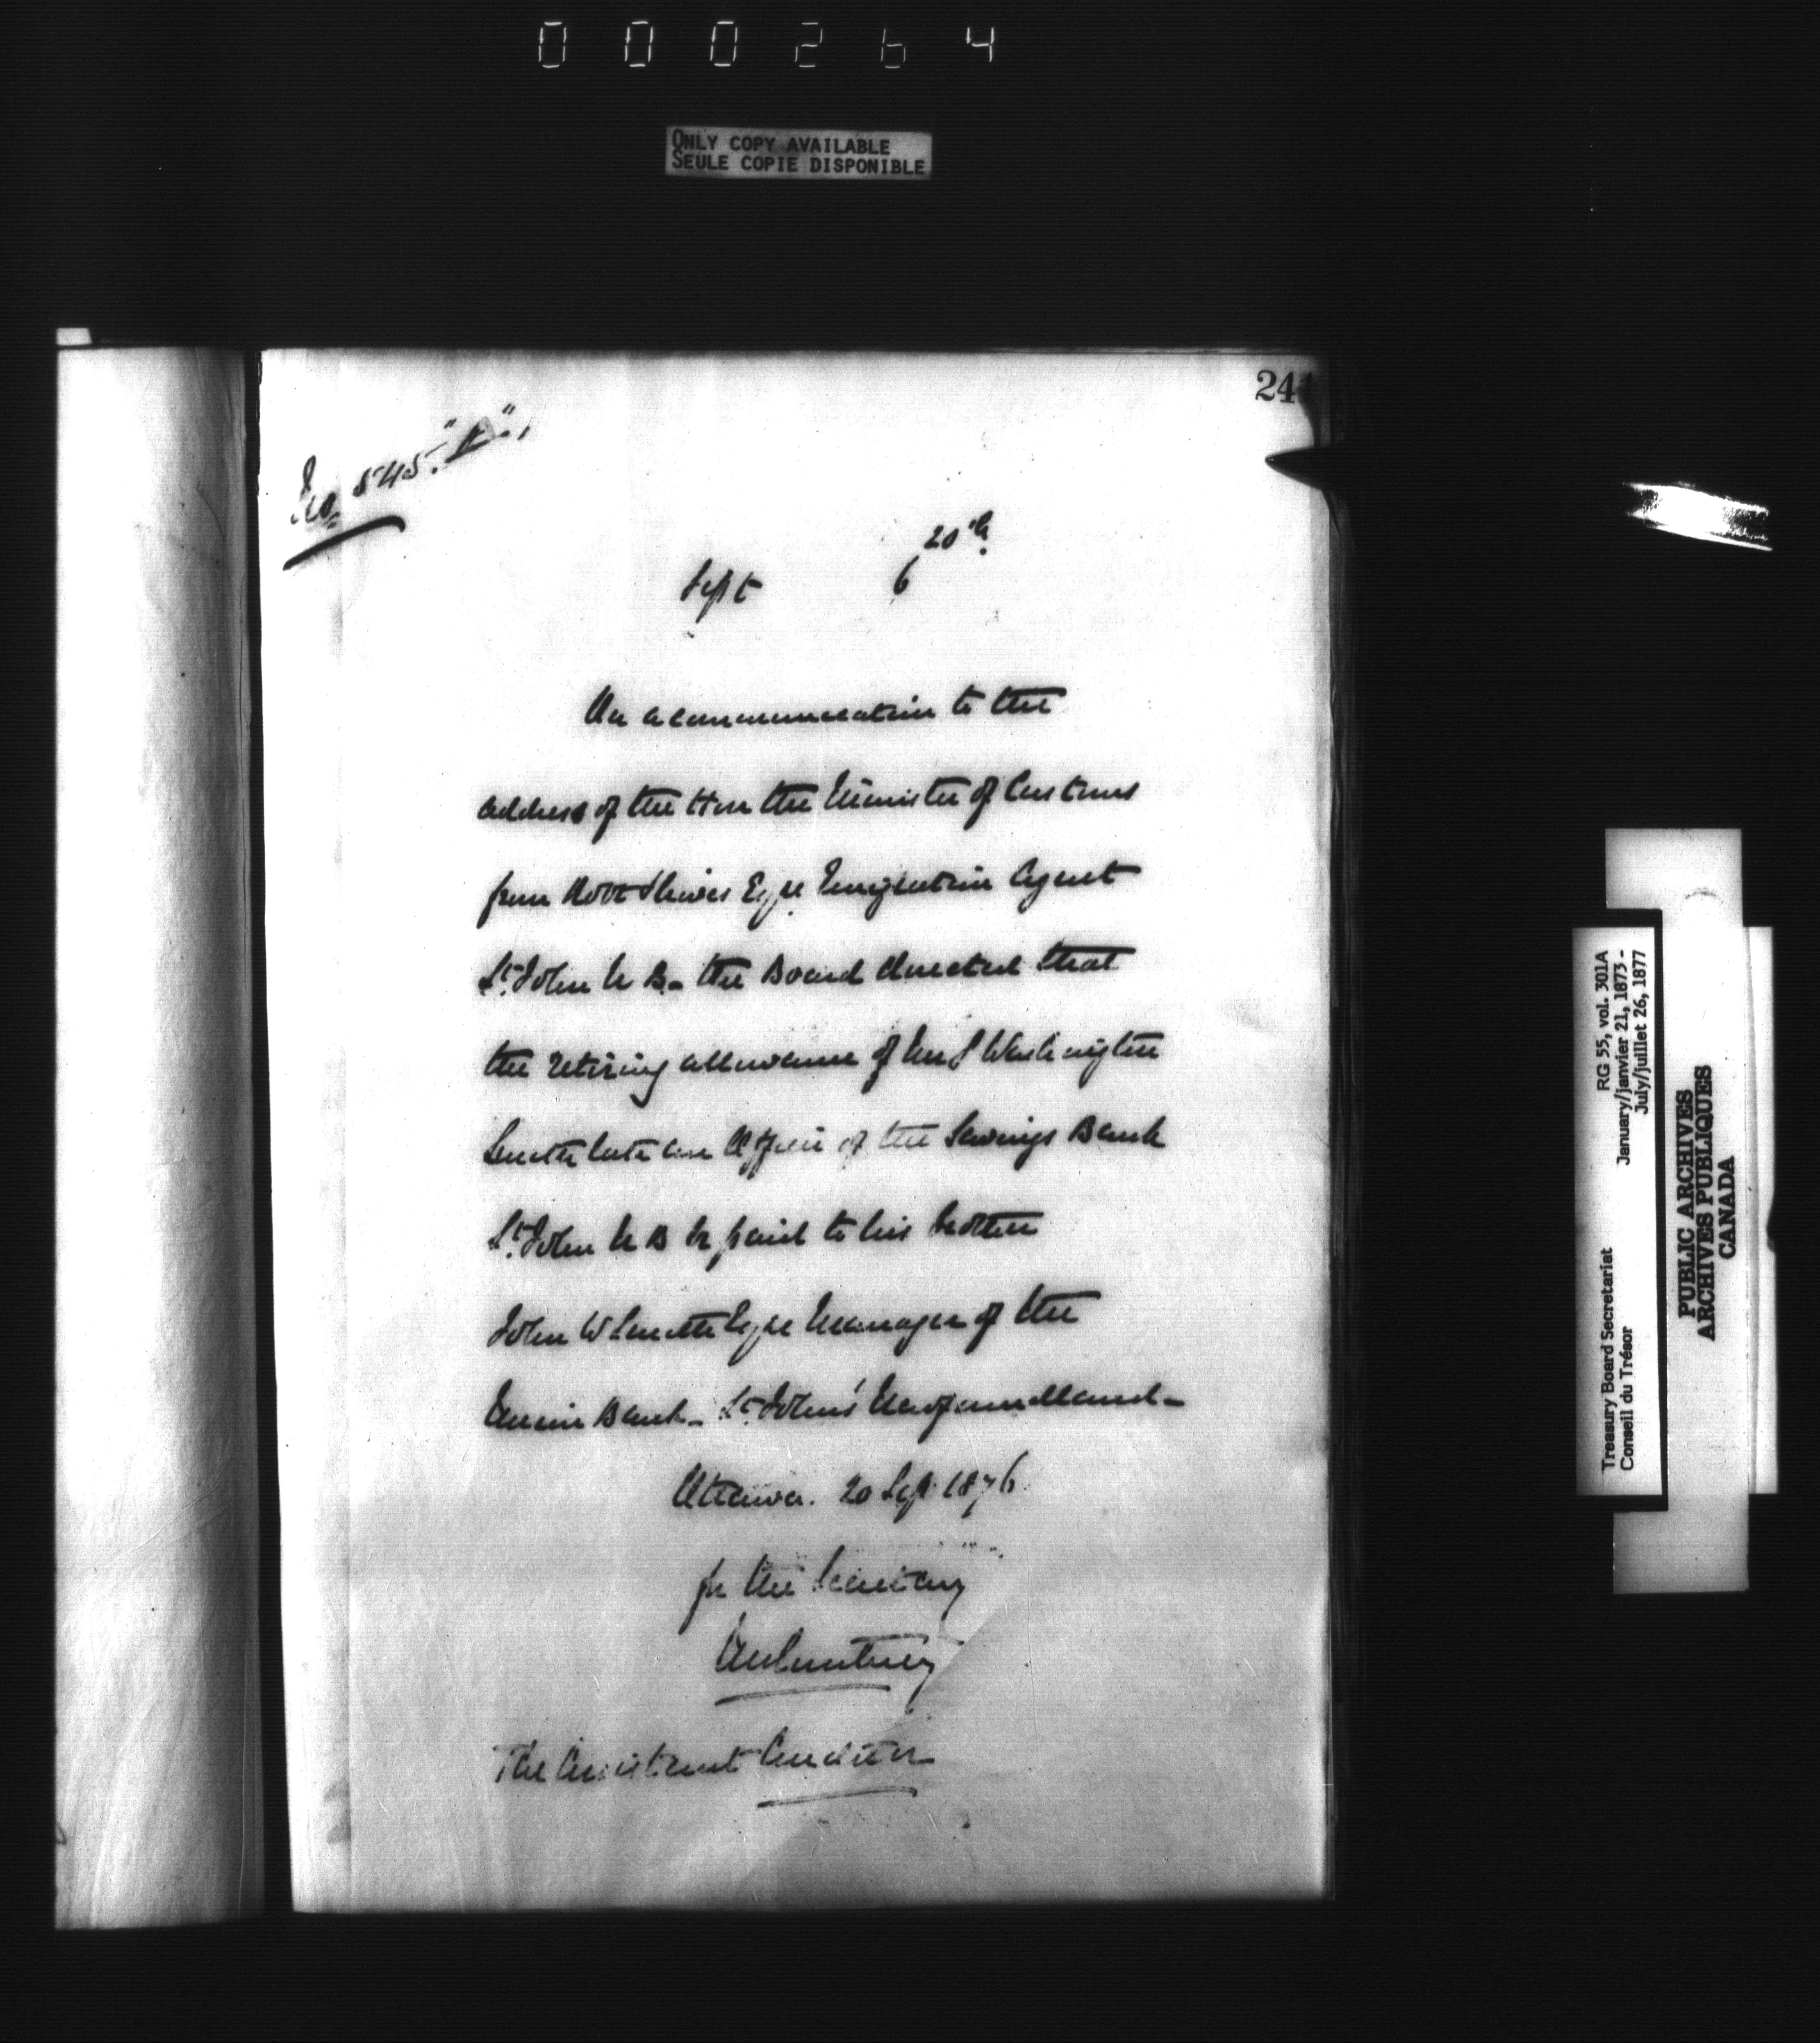 000264
ONLY COPY AVAILABLE
SEULE COPIE DISPONIBLE
24
No 545.
20th
Sept 6
On a communication to the
address of the Hon the Minister of Customs
from Robt Shives Esqre Emigration Agent
St. John N B. the Board directed that
the retiring allowance of Mr J Washington
Smith late an Officer of the Savings Bank
St. John N B be paid to his brother
John W Smith Esqre Manager of the
Union Bank - St. John's Newfoundland -
Ottawa. 20 Sept 1876.
for the Secretary
The Assistant Auditor
RG 55, vol. 301A
January/janvier 21, 1873 -
July/juillet 26, 1877
Treasury Board Secretariat
Conseil du Trésor
PUBLIC ARCHIVES
ARCHIVES PUBLIQUES
CANADA